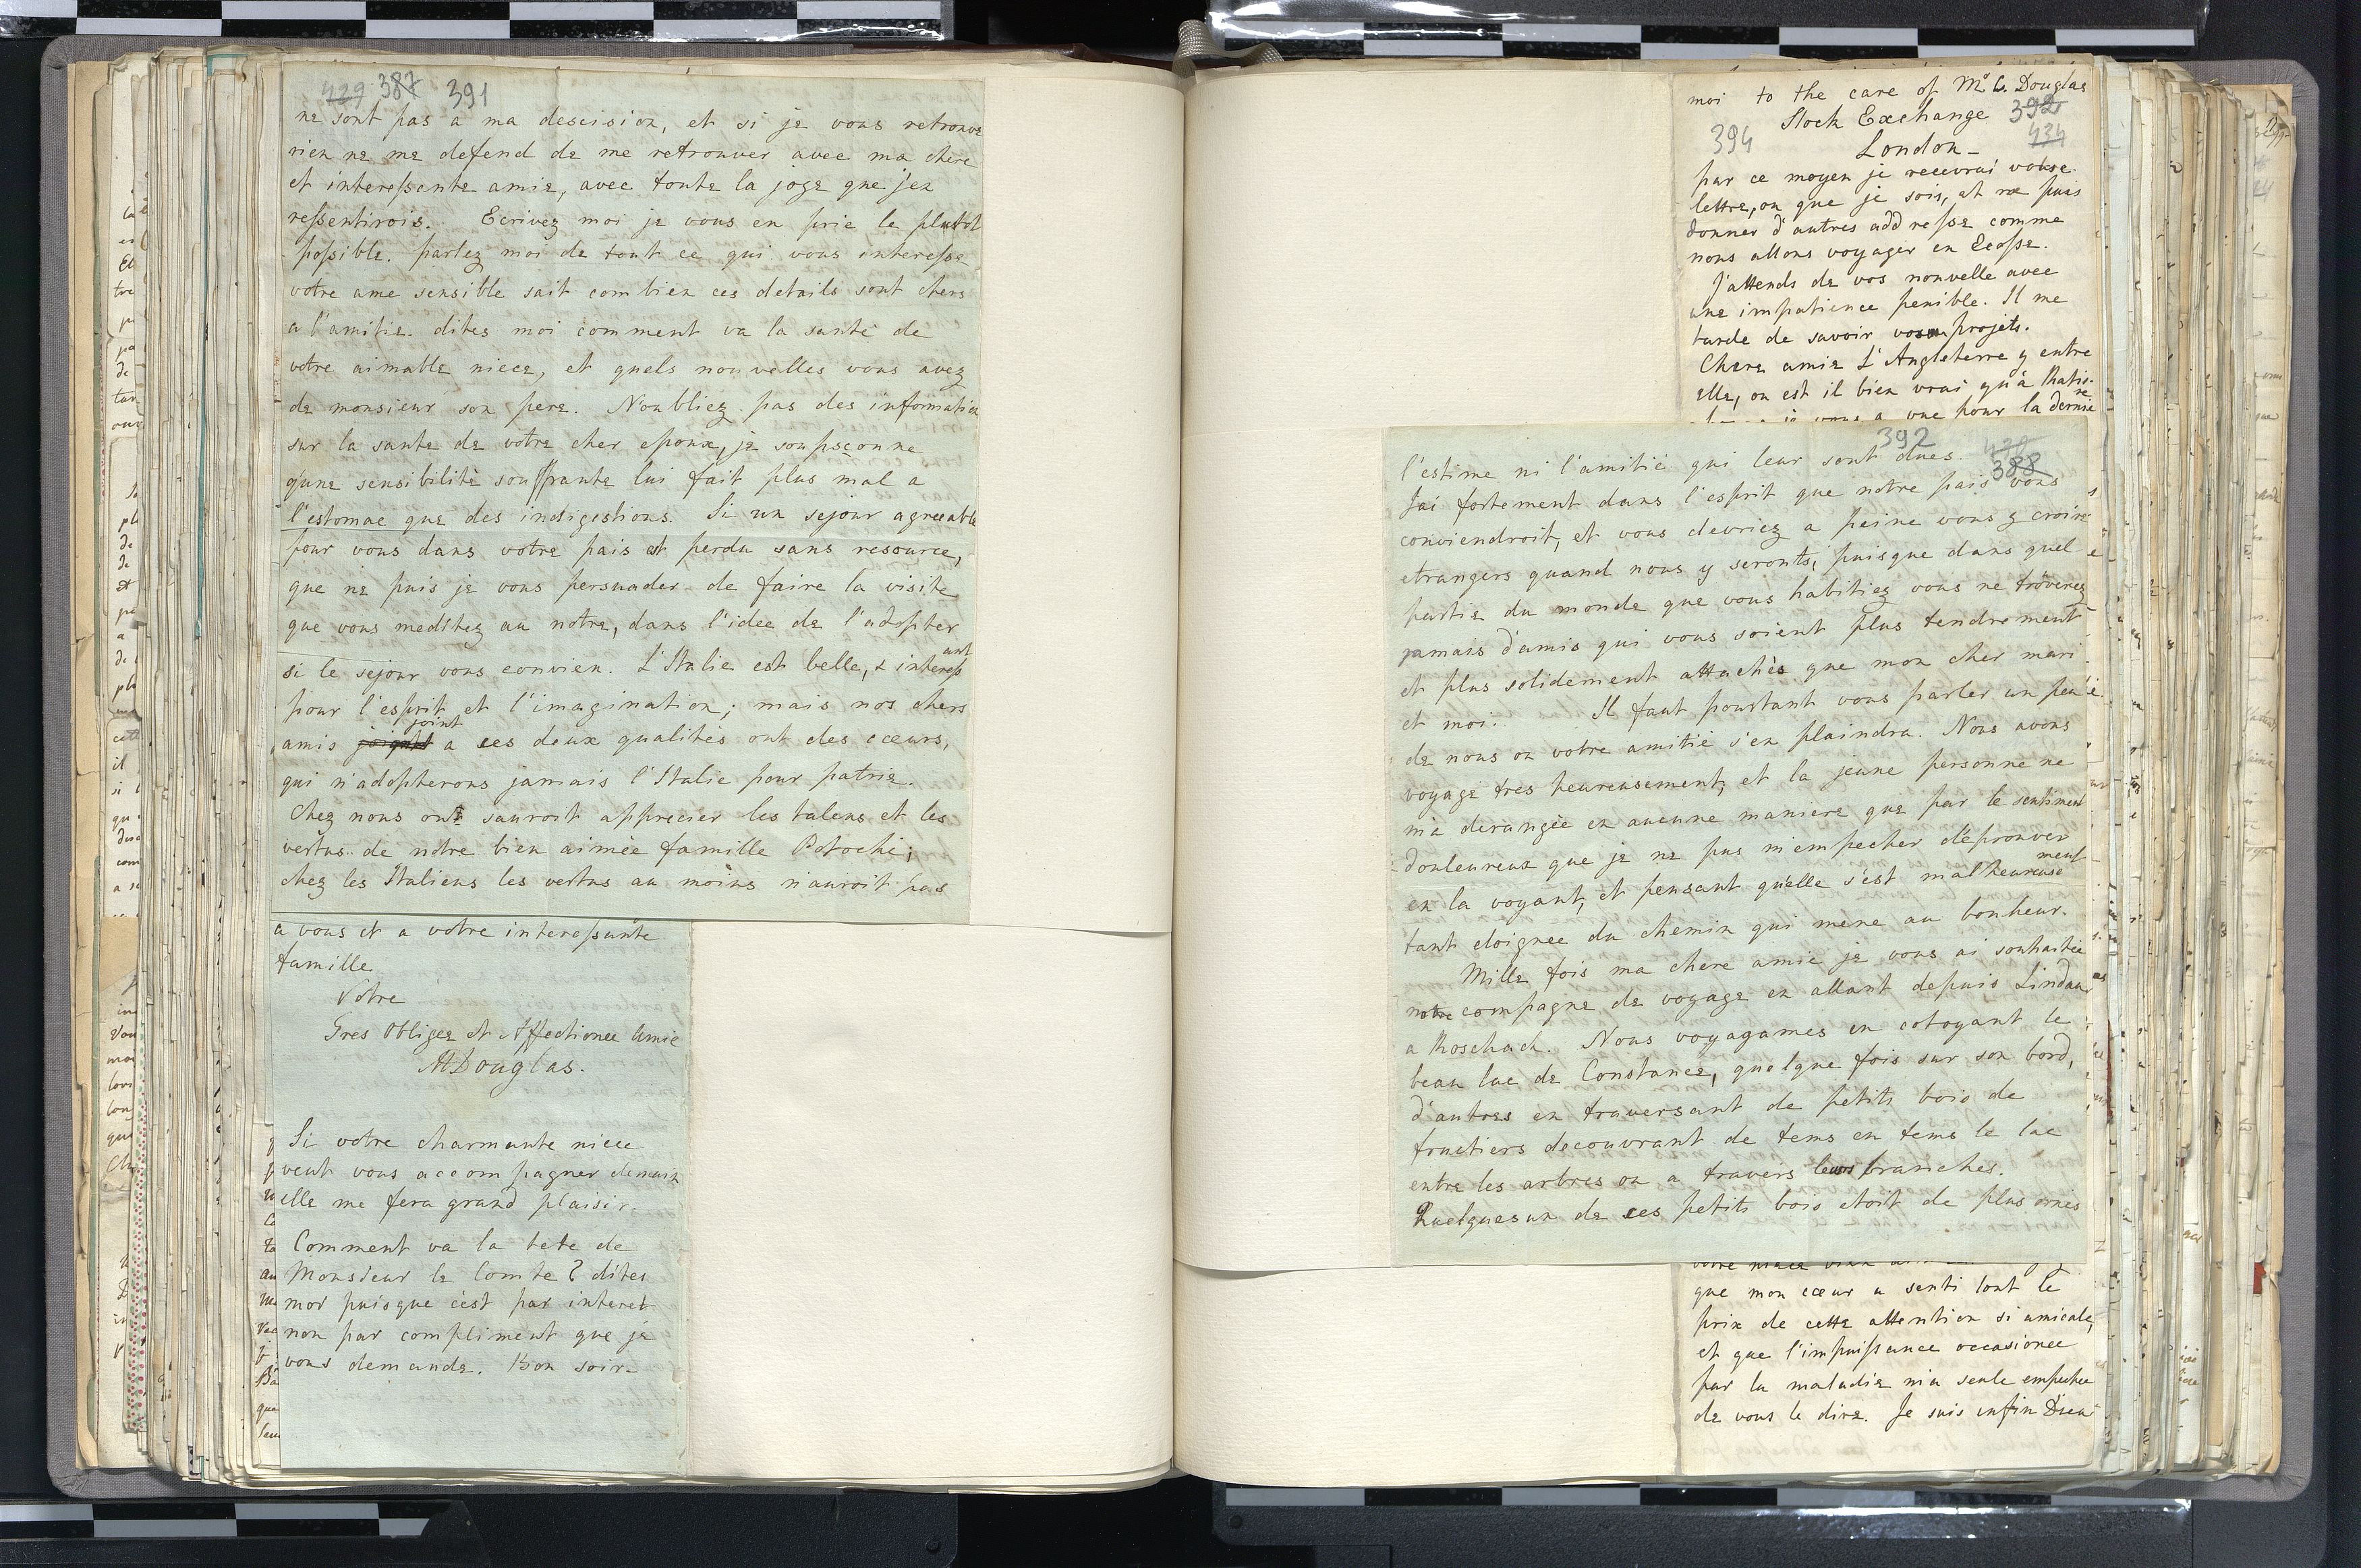 429 387 391
ne sont pas a ma descision, et si je vous retrouve
rien ne me defend de me retrouver avec ma chere
et interessante amie, avec toute la joye que j'en
ressentirois. Ecrivez moi je vous en prie le plutot
possible. parlez moi de tout ce qui vous interesse
votre ame sensible sait combien ces details sont chers
a l'amitie. dites moi comment va la santé de
votre aimable niece, et quels nouvelles vous avez
de monsieur son pere. Noubliez pas des information
sur la sante de votre cher epoux, je soupsçonne
qu'une sensibilité souffrante lui fait plus mal a
l'estomac que des indigestions. Si un sejour agreeable
pour vous dans votre pais est perdu sans resource,
que ne puis je vous persuader de faire la visite
que vous meditez au notre, dans l'idee de l'adopter
si le sejour vous convien. L'Italie est belle, & interessant
pour l'esprit et l'imagination; mais nos chers
amis joint a ces deux qualités ont des cœurs,
qui n'adopterons jamais l'Italie pour patrie.
Chez nous ont sauroit apprecier les talens et les
vertus de notre bien aimée famille Potocki;
chez les Italiens les vertus au moins n'auroit pas
a vous et a votre interessante
famille
Votre
Tres Obligee et Affectionee Amie
ADouglas.
Si votre charmante niece
veut vous accompagner demain
elle me fera grand plaisir.
Comment va la tete de
Monsieur le Comte? dites
moi puisque c'est par interet
non par compliment que je
vous demande. Bon soir
moi to the care of Mr C. Douglas
Stock Exchange 392
394 434
London
par ce moyen je recevrai votre
lettre, ou que je sois, et ne puis
donner d'autres addresse comme
nous allons voyager en Ecosse.
J'attends de vos nouvelle avec
une impatience penible. Il me
tarde de savoir vos projets.
Chere amie L'Angleterre y entre
elle, ou est il bien vrai qu'à Ratis-
je vous a vue pour la derniere
392
388
l'estime ni l'amitié qui leur sont dues.
J'ai fortement dans l'esprit que notre pais vous
conviendroit, et vous devriez a peine vous y croire
etrangers quand nous y seronts, puisque dans quel
partie du monde que vous habitiez vous ne troverez
jamais d'amis qui vous soient plus tendrement
et plus solidement attachés que mon cher mari
et moi. Il faut pourtant vous parler un peu
de nous ou votre amitié s'en plaindra. Nous avons
voyage tres heureusement, et la jeune personne ne
m'a derangée en aucune maniere que par le sentiment
douleureux que je ne pus m'empecher d'eprouver
en la voyant, et pensant qu'elle s'est malheureusement
tant eloignee du chemin qui mene au bonheur.
Mille fois ma chere amie je vous ai souhaitée
notre compagne de voyage en allant depuis Lindau
a Roschach. Nous voyagames en cotoyant le
beau lac de Constance, quelque fois sur son bord,
d'autres en traversant de petits bois de
fructiers decouvrant de tems en tems le lac
entre les arbres ou a travers leurs branches.
Quelquesun de ces petits bois etoit de plus ornés
que mon cœur a senti tout le
prix de cette attention si amicale,
et que l'impuissance occasionee
par la maladie m'a seule empechee
de vous le dire. Je suis enfin Dieu